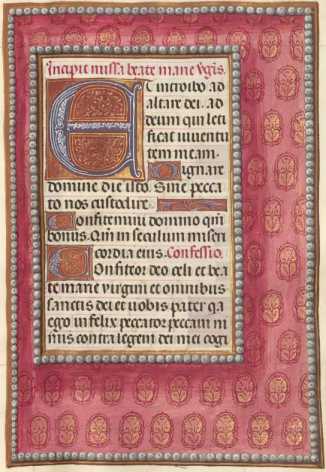 Incipit missa beate marie v̓gis.
Et introibo ad
altare dei. ad
deum qui leti
ficat iuuentu
tem meam.
Dignare
domine die isto. Sine pecca
to nos custodire.
Confitemini domino qm̄
bonus. Qm̄ in seculum miseri
cordia eius. Confessio.
Confiteor deo celi et bea
te marie virgini et omnibus
sanctis dei et uobis pater q̓a
ego infelix peccator peccaui ni
mis contra legem dei mei cogi